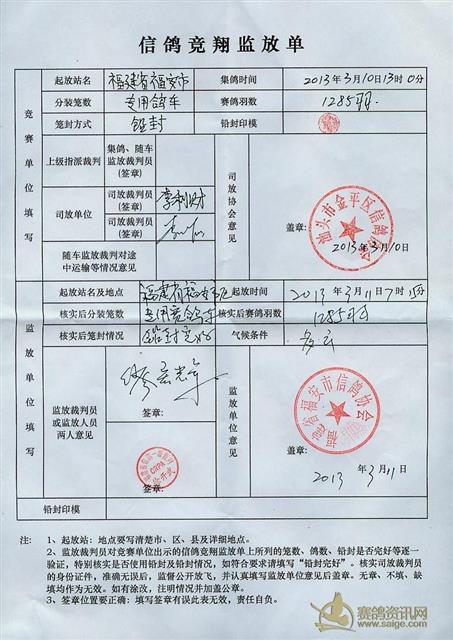 信鸽竞翔监放单
竞赛单位填写
起放站名 福建省福安市 集鸽时间 2013年3月10日13时0分
分装笼数 专用鸽车 赛鸽羽数 1285羽
笼封方式 铅封 铅封印模
上级指派裁判 集鸽、随车监放裁判员(签章)
司放单位 司放裁判员(签章)
司放裁判员(签章)
随车监放裁判对途中运输等情况意见
司放协会意见
汕头市金平区信鸽
盖章:
2013年3月10日
监放单位填写
起放站名及地点 福建省福安市 起放时间 2013年3月11日7时
核实后分装笼数 专用赛鸽车 核实后赛鸽羽数 1285羽
核实后笼封情况 铅封完好 气候条件 多云
监放裁判员或监放人员两人意见
签章:
签章:
监放单位意见
福建省福安市信鸽协会
盖章:
2013年3月11日
铅封印模
注: 1、起放站:地点要写清楚市、区、县及详细地点。
2、监放裁判员对竞赛单位出示的信鸽竞翔监放单上所列的笼数、鸽数、铅封是否完好等逐一
验证,特别核实是否使用铅封及铅封情况,如符合要求请填写“铅封完好”。核实司放裁判员
的身份证件,准确无误后,监督公开放飞,并认真填写监放单位意见后盖章。无章、不填、缺
填均作为无效。如有涂改,注明情况并加盖公章。
3、签章位置要正确:填写签章有误此表无效,责任自负。
赛鸽资讯网
www.saige.com